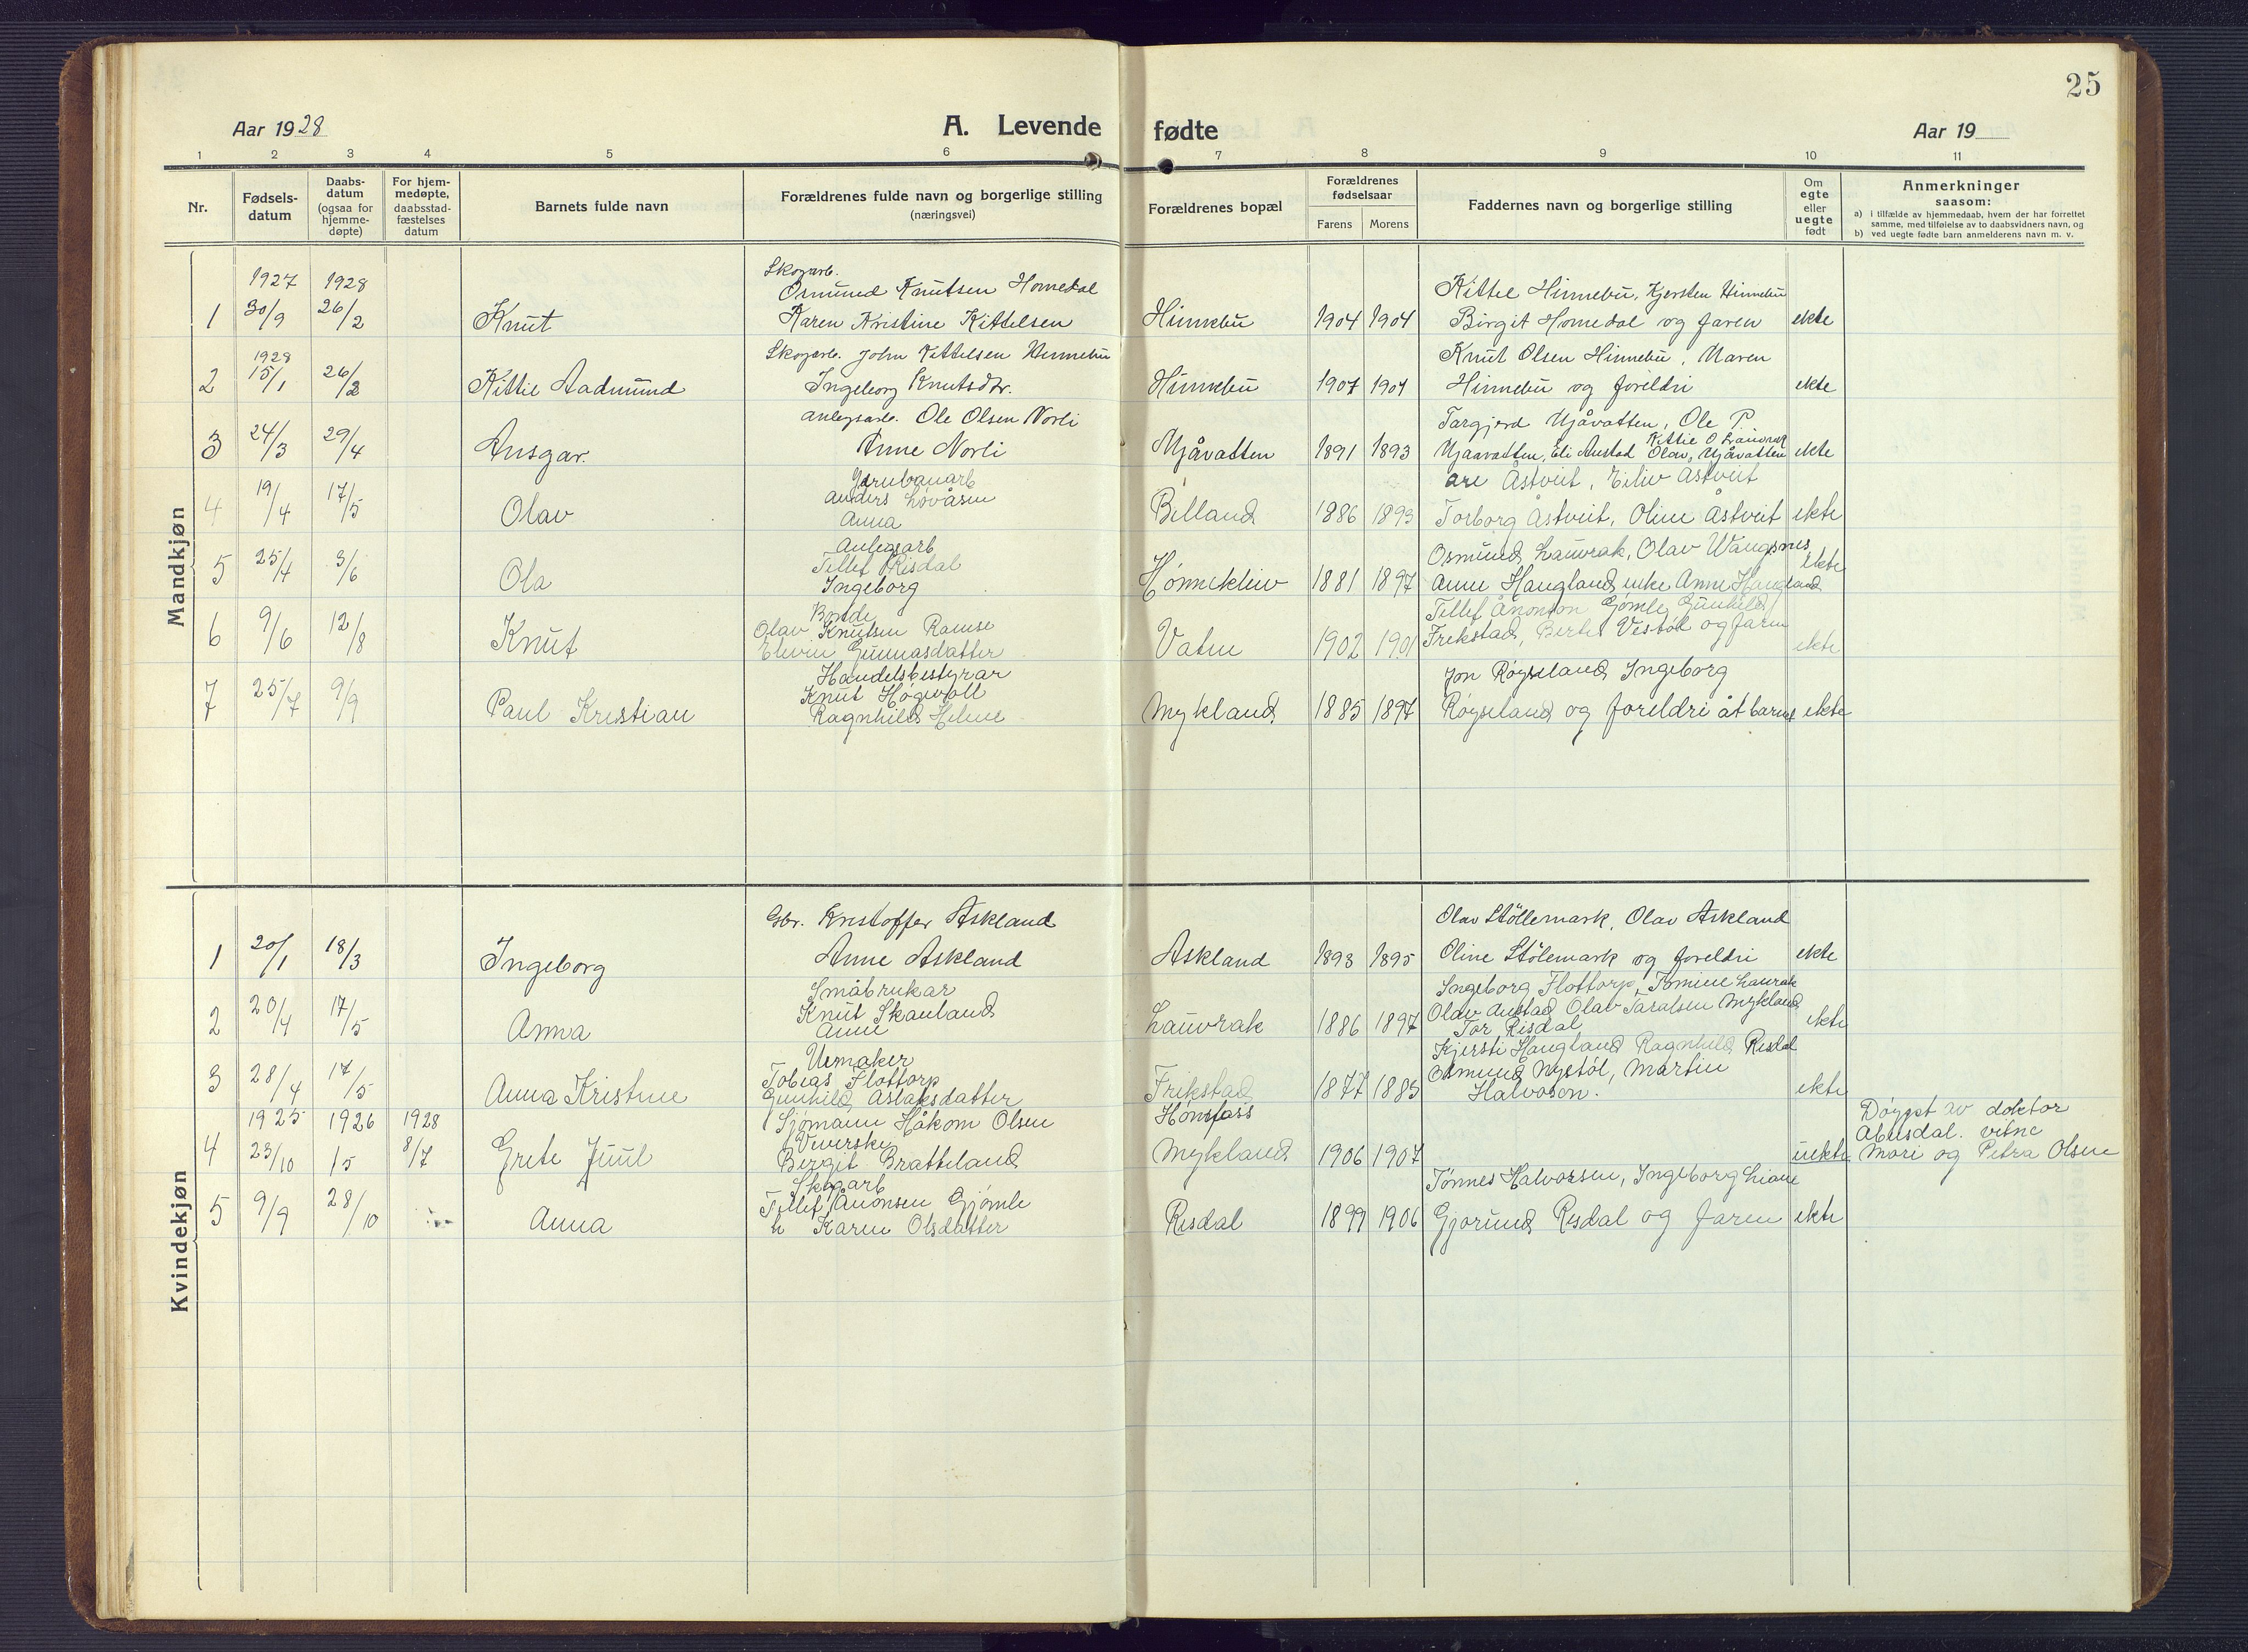 25
Aar 1928
A. Levende fødte
Aar 19
1 2 3 4 5 6 7 8 9 10 11
Nr.
Fødsels-
datum
Daabs-
datum
(ogsaa for
hjemme-
døpte)
For hjem-
medøpte,
daabsstad-
fæstelses
datum
Barnets fulde navn
Forældrenes fulde navn og borgerlige stilling
(næringsvei)
Forældrenes bopæl
Forældrenes
fødselsaar
Farens Morens
Faddernes navn og borgerlige stilling
Om
egte
eller
uegte
født
Anmerkninger
saasom:
a) i tilfælde av hjemmedaab, hvem der har forrettet
samme, med tilføielse av to daabsvidners navn, og
b) ved uegte fødte barn anmelderens navn m. v.
Mandkjøn
Skogarb.
1927 1928 Osmund Knutsen Homedal Kittel Hinnebu, Kjersten Hinnebu
1 30/9 26/2 Knut Karen Kristine Kittelsen Hinnebu 1904 1904 Birgit Homedal og faren ekte
1928 Skogarb. John Kittelsen Hinnebu Knut Olsen Hinnebu, Maren
2 15/1 26/2 Kittil Aadmund Ingeborg Knutsdtr. Hinnebu 1907 1904 Hinnebu og foreldri ekte
anlegsarb. Ole Olsen Norli Targjerd Mjåvatten, Ole P.
Kittil O. Lauvrak
3 24/3 29/4 Ansgar. Anne Norli Mjåvatten 1891 1893 Mjaavatten, Eli Austad Olav Mjåvatten ekte
Jarnbanarb Are Åstveit, Eiliv Åstveit
Anders Løvåsen
4 19/4 17/5 Olav Anna Belland 1886 1893 Torborg Åstveit, Oline Åstveit ekte
Anlegsarb Osmund Lauvrak, Olav Wangsnes
Tellef Risdal
5 25/4 3/6 Ola Ingeborg Hønnekleiv 1881 1897 Anne Haugland enke Anne Haugland ekte
Bonde Tellef Ånonson Gjømle Gunhild
Olav Knutsen Ramse
6 9/6 12/8 Knut Gunnasdatter Vatne 1902 1901 Frekstad, Vestøl og faren ekte
Handelsbestyrar Jon Røyseland Ingeborg
Knut Høgevoll
7 25/7 9/9 Paul Kristian Ragnhild Helene Mykland 1885 1897 Røyseland og foreldri åt barnet ekte
Kvindekjøn
Gbr. Kristoffer Askland Olav Stöllemark, Olav Askland
1 20/1 18/3 Ingeborg Anne Askland Askland 1893 1895 Oline Stölemark og foreldri ekte
Småbrukar Ingeborg Flottorp, Tomine Laurak
Knut Skauland Olav Austad Olav Taralsen Mykland
2 20/4 17/5 Anna Anne Lauvrak 1886 1897 Tor Risdal ekte
Urmaker Kjersti Haugland Ragnhild Risdal
Tobias Flottorp Osmund Nystøl, Martin
3 28/4 17/5 Anna Kristine Gunhild Aslaksdatter Frikstad 1877 1885 Halvoson. ekte
1925 1926 1928 Sjømann Håkom Olsen Hønefoss Døypt av doktor
Veverske Abusdal. vitne
4 23/10 15 8/7 Grete Juul Bergit Bratteland Mykland 1906 1907 uekte Mari og Petra Olsen
Skogarb Tønnes Halvorsen, Ingeborg Liane
Tellef Ånonsen Gjømle
5 9/9 28/10 Anna h Karen Olsdatter Risdal 1899 1906 Gjørund Risdal og faren ekte